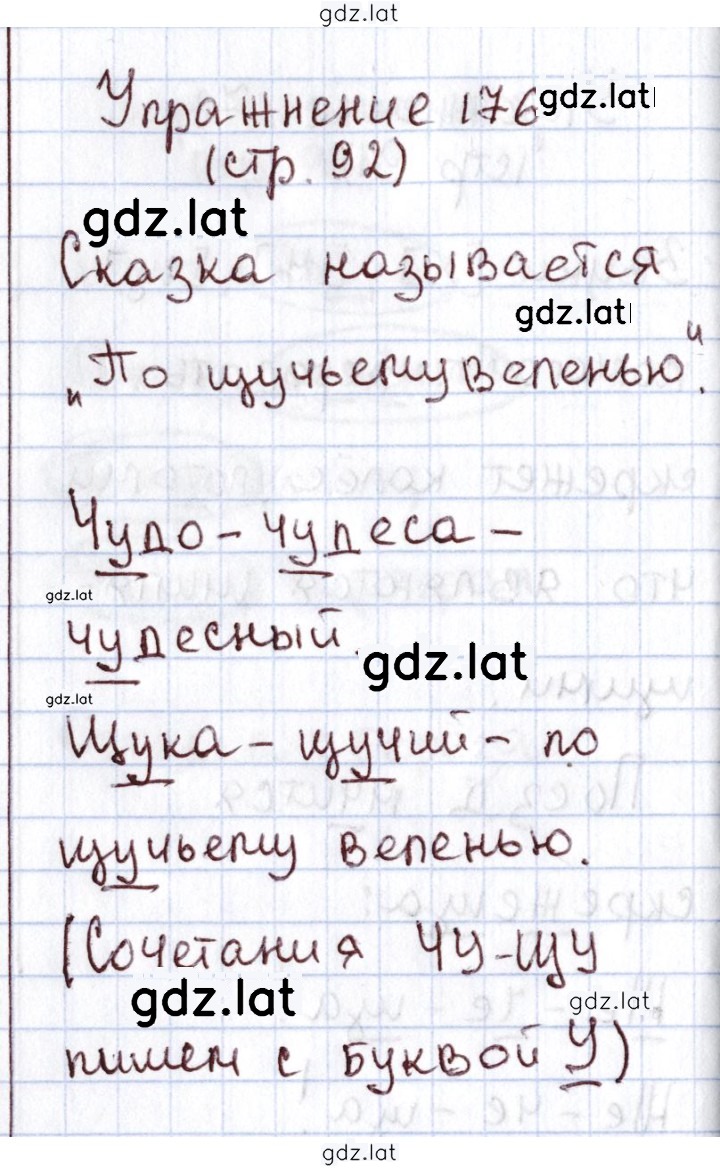 gdz.lat
Упражнение 176 gdz.lat
(стр. 92)
gdz.lat
Сказка называется
gdz.lat
„По щучьему веленью".
Чудо - чудеса -
gdz.lat
чудесный.
gdz.lat
gdz.lat
Щука - щучий - по
щучьему веленью.
(Сочетания ЧУ-ЩУ
gdz.lat
gdz.lat
пишем с буквой У)
gdz.lat